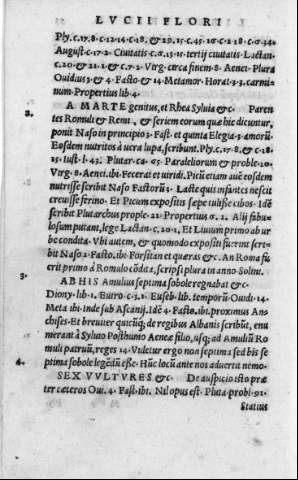 LVCII FLORI
Phy. c. 17. 8. c. 12. 14. c. 18. & 29. 15. c. 45. 10. c. 2. 18. c. 34.
August. c. 17. 2. Ciuitatis c. 15. 11. tertij ciuitatis. Lactan.
c. 20. & 21. 1. & c. 7. 2. Virg. circa finem. 8. Aenei. Plura
Ouidius 3. & 4. Fasto. & 14. Metamor. Horat. 3. 3. carmi-
num. Propertius lib. 4.
2. A MARTE genitus, et Rhea Syluia &c. Paren
tes Romuli & Remi, & seriem eorum quæ hic dicuntur,
ponit Naso in principio 3. Fast. et quinta Elegia 3. amorũ.
Eosdem nutritos à uera lupa, scribunt. Phy. c. 15. 8. & c. 18.
15. Iust. l. 43. Plutar. c. 65. Paraleliorum & proble. 20.
Virg. 8. Aenei. ibi. Fecerat et uiridi. Picũ etiam auẽ eosdem
nutrisse scribit Naso Fastorũ 3. Lacte quis infantes nescit
creuisse ferino. Et Picum expositis sæpe tulisse cibos. Idẽ
scribit Plutarchus proble. 21. Propertius 2. Alij fabu-
losum putant, lege Lactan. c. 20. 1. Et Liuium primo ab ur
be condita. Vbi autem, & quomodo expositi fuerint scri-
bit Naso 2. Fasto. ibi. Forsitan et quæras &c. An Roma fu
erit primo à Romulo cõdita, scripsi plura in anno Solini.
3. AB HIS Amulius septima sobole regnabat &c.
Diony. lib. 1. Eutro. c. 3. 1. Euseb. lib. temporũ. Ouid. 14.
Meta. ibi. Inde sub Ascanij. Idẽ 4. Fasto. ibi. proximus An-
chises. Et breuiter quicũq; de regibus Albanis scribũt, enu
merant à Syluio Posthumo Aeneæ filio, usq; ad Amuliũ Ro
muli patruũ, reges 14. Videtur ergo non septima sed bis se
ptima sobole legẽdũ esse. Hũc locũ ante nos aduertit nemo.
4. SEX VVLTVRES &c. De auspicio isto præ
ter cæteros Oui. 4. Fast. ibi. Nil opus est. Pluta. probl. 91.
Statius